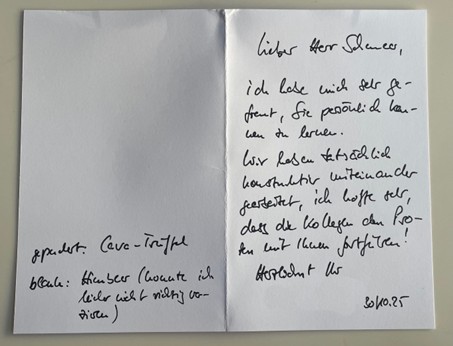 gepudert: Cava-Trüffel
blank: Himbeer (konnte ich
leider nicht richtig ver-
zieren)
lieber Herr
ich habe mich sehr ge-
freut, Sie persönlich ken-
nen zu lernen.
Wir haben tatsächlich
konstruktiv miteinander
gearbeitet, ich hoffe sehr,
dass die Kollegen den Pro-
mit Ihnen fortführen!
Herzlichst Ihr
30/10.25